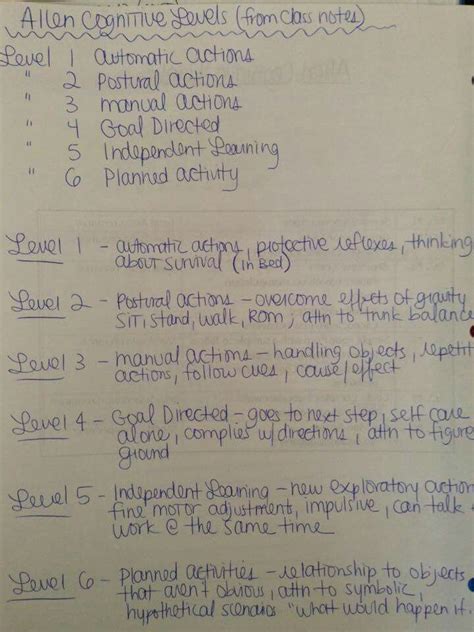 Allen Cognitive Levels (from class notes)
Level 1 automatic actions
" 2 Postural actions
" 3 manual actions
" 4 Goal Directed
" 5 Independent Learning
" 6 Planned activity
Level 1 - automatic actions, protective reflexes, thinking
about survival (in bed)
Level 2 - Postural actions - overcome effects of gravity
sit, stand, walk, ROM; attn to trunk balance
Level 3 - manual actions - handling objects, repetit
actions, follow cues, cause/effect
Level 4 - Goal Directed - goes to next step, self care
alone, complies w/directions, attn to figure
ground
Level 5 - Independent Learning - new exploratory action
fine motor adjustment, impulsive, can talk
work @ the same time
Level 6 - Planned activities - relationship to objects
that aren't obvious, attn to symbolic,
hypothetical scenarios "what would happen if